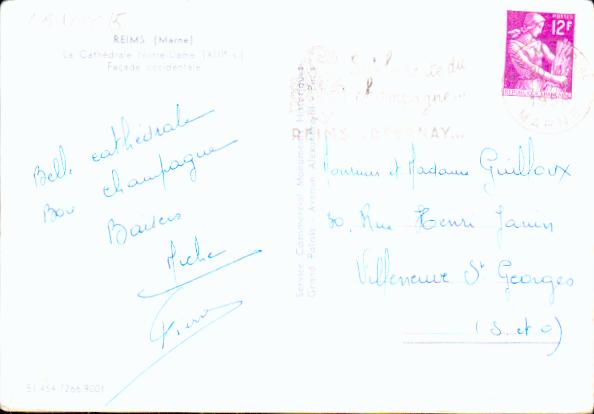 REIMS (Marne)
La Cathédrale Notre-Dame (XIIIe s.)
Façade occidentale
Belle cathédrale
Bon champagne
Baisers
Miche
Pierre
51.454.7266.9001
Service Commercial Monuments Historiques
Grand Palais - Avenue Alexandre III - Paris
route du
champagne...
REIMS EPERNAY...
POSTES
12F
MARNE
Monsieur et Madame Guilloux
30, Rue Henri Janin
Villeneuve St Georges
(S. et O)